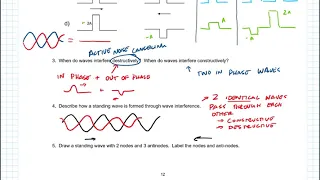 d)
-A
2A
-A
ACTIVE NOISE CANCELLING
3. When do waves interfere destructively? When do waves interfere constructively?
IN PHASE + OUT OF PHASE
↑ TWO IN PHASE WAVES
+
4. Describe how a standing wave is formed through wave interference.
* 2 IDENTICAL WAVES
PASS THROUGH EACH
OTHER
→ CONSTRUCTIVE
→ DESTRUCTIVE
5. Draw a standing wave with 2 nodes and 3 antinodes. Label the nodes and anti-nodes.
12